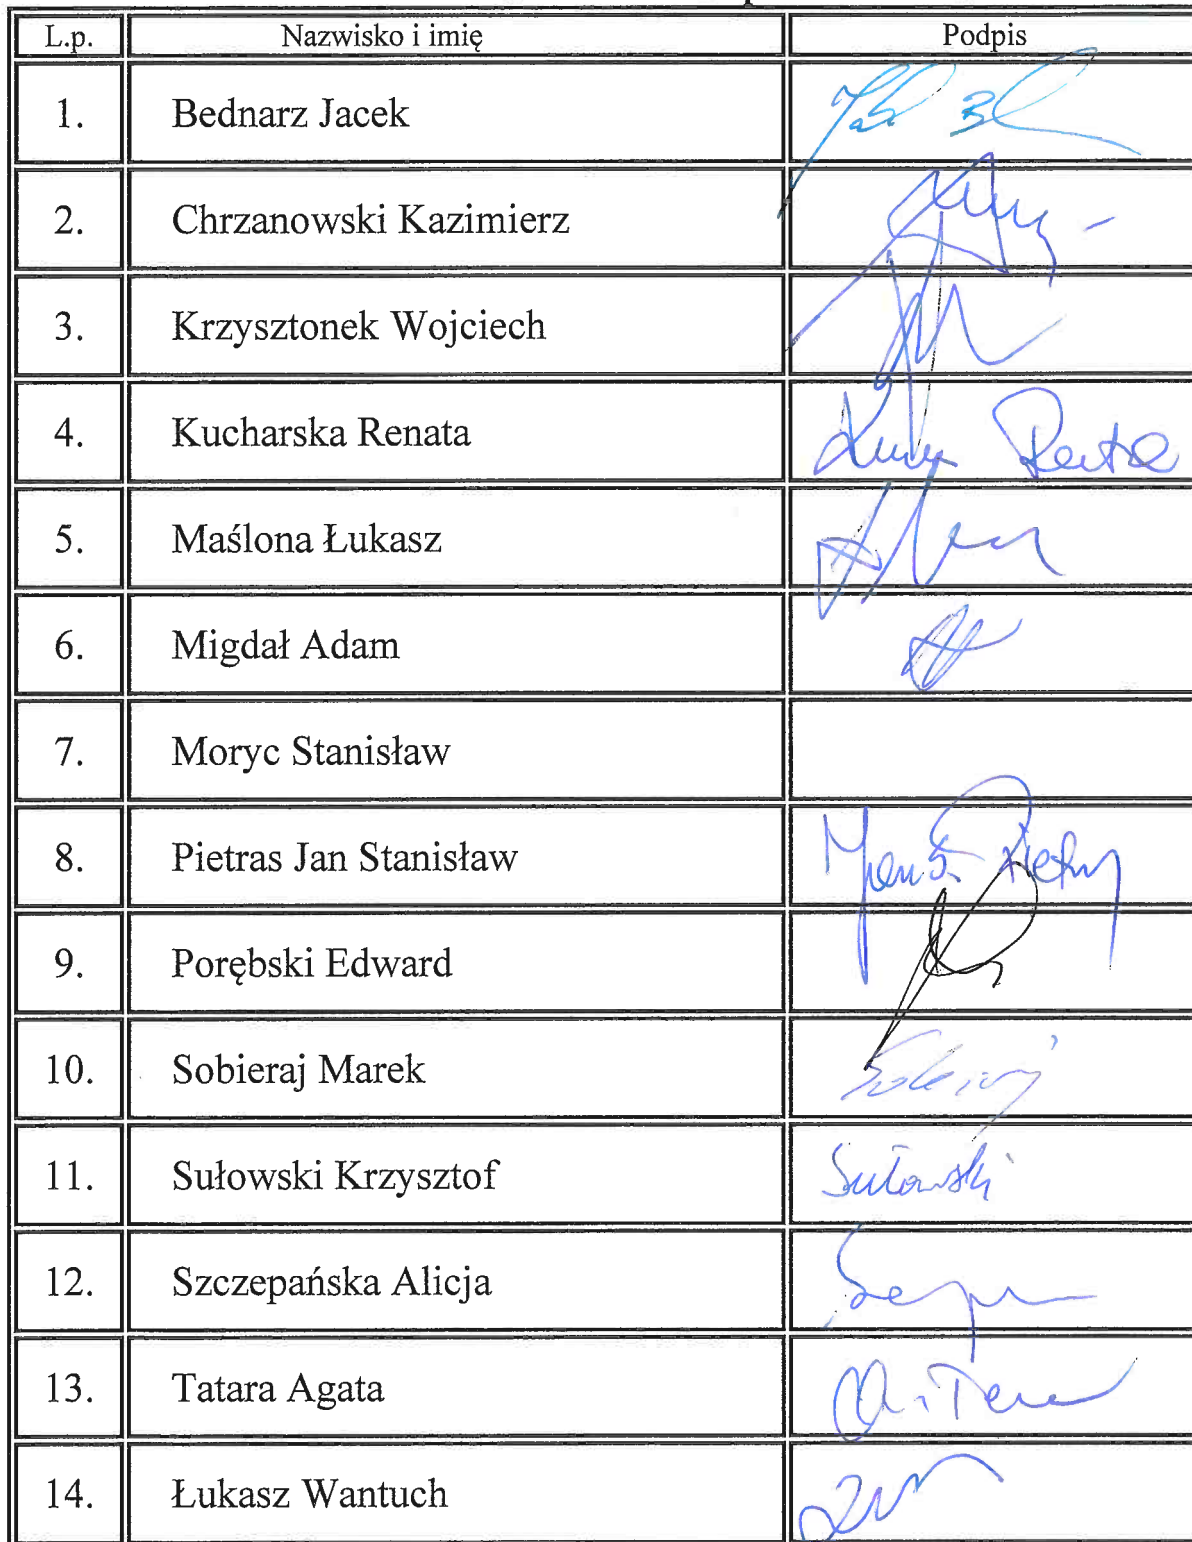 L.p. Nazwisko i imię Podpis
1. Bednarz Jacek
2. Chrzanowski Kazimierz
3. Krzysztonek Wojciech
4. Kucharska Renata
5. Maślona Łukasz
6. Migdał Adam
7. Moryc Stanisław
8. Pietras Jan Stanisław
9. Porębski Edward
10. Sobieraj Marek
11. Sułowski Krzysztof Sułowski
12. Szczepańska Alicja
13. Tatara Agata
14. Łukasz Wantuch